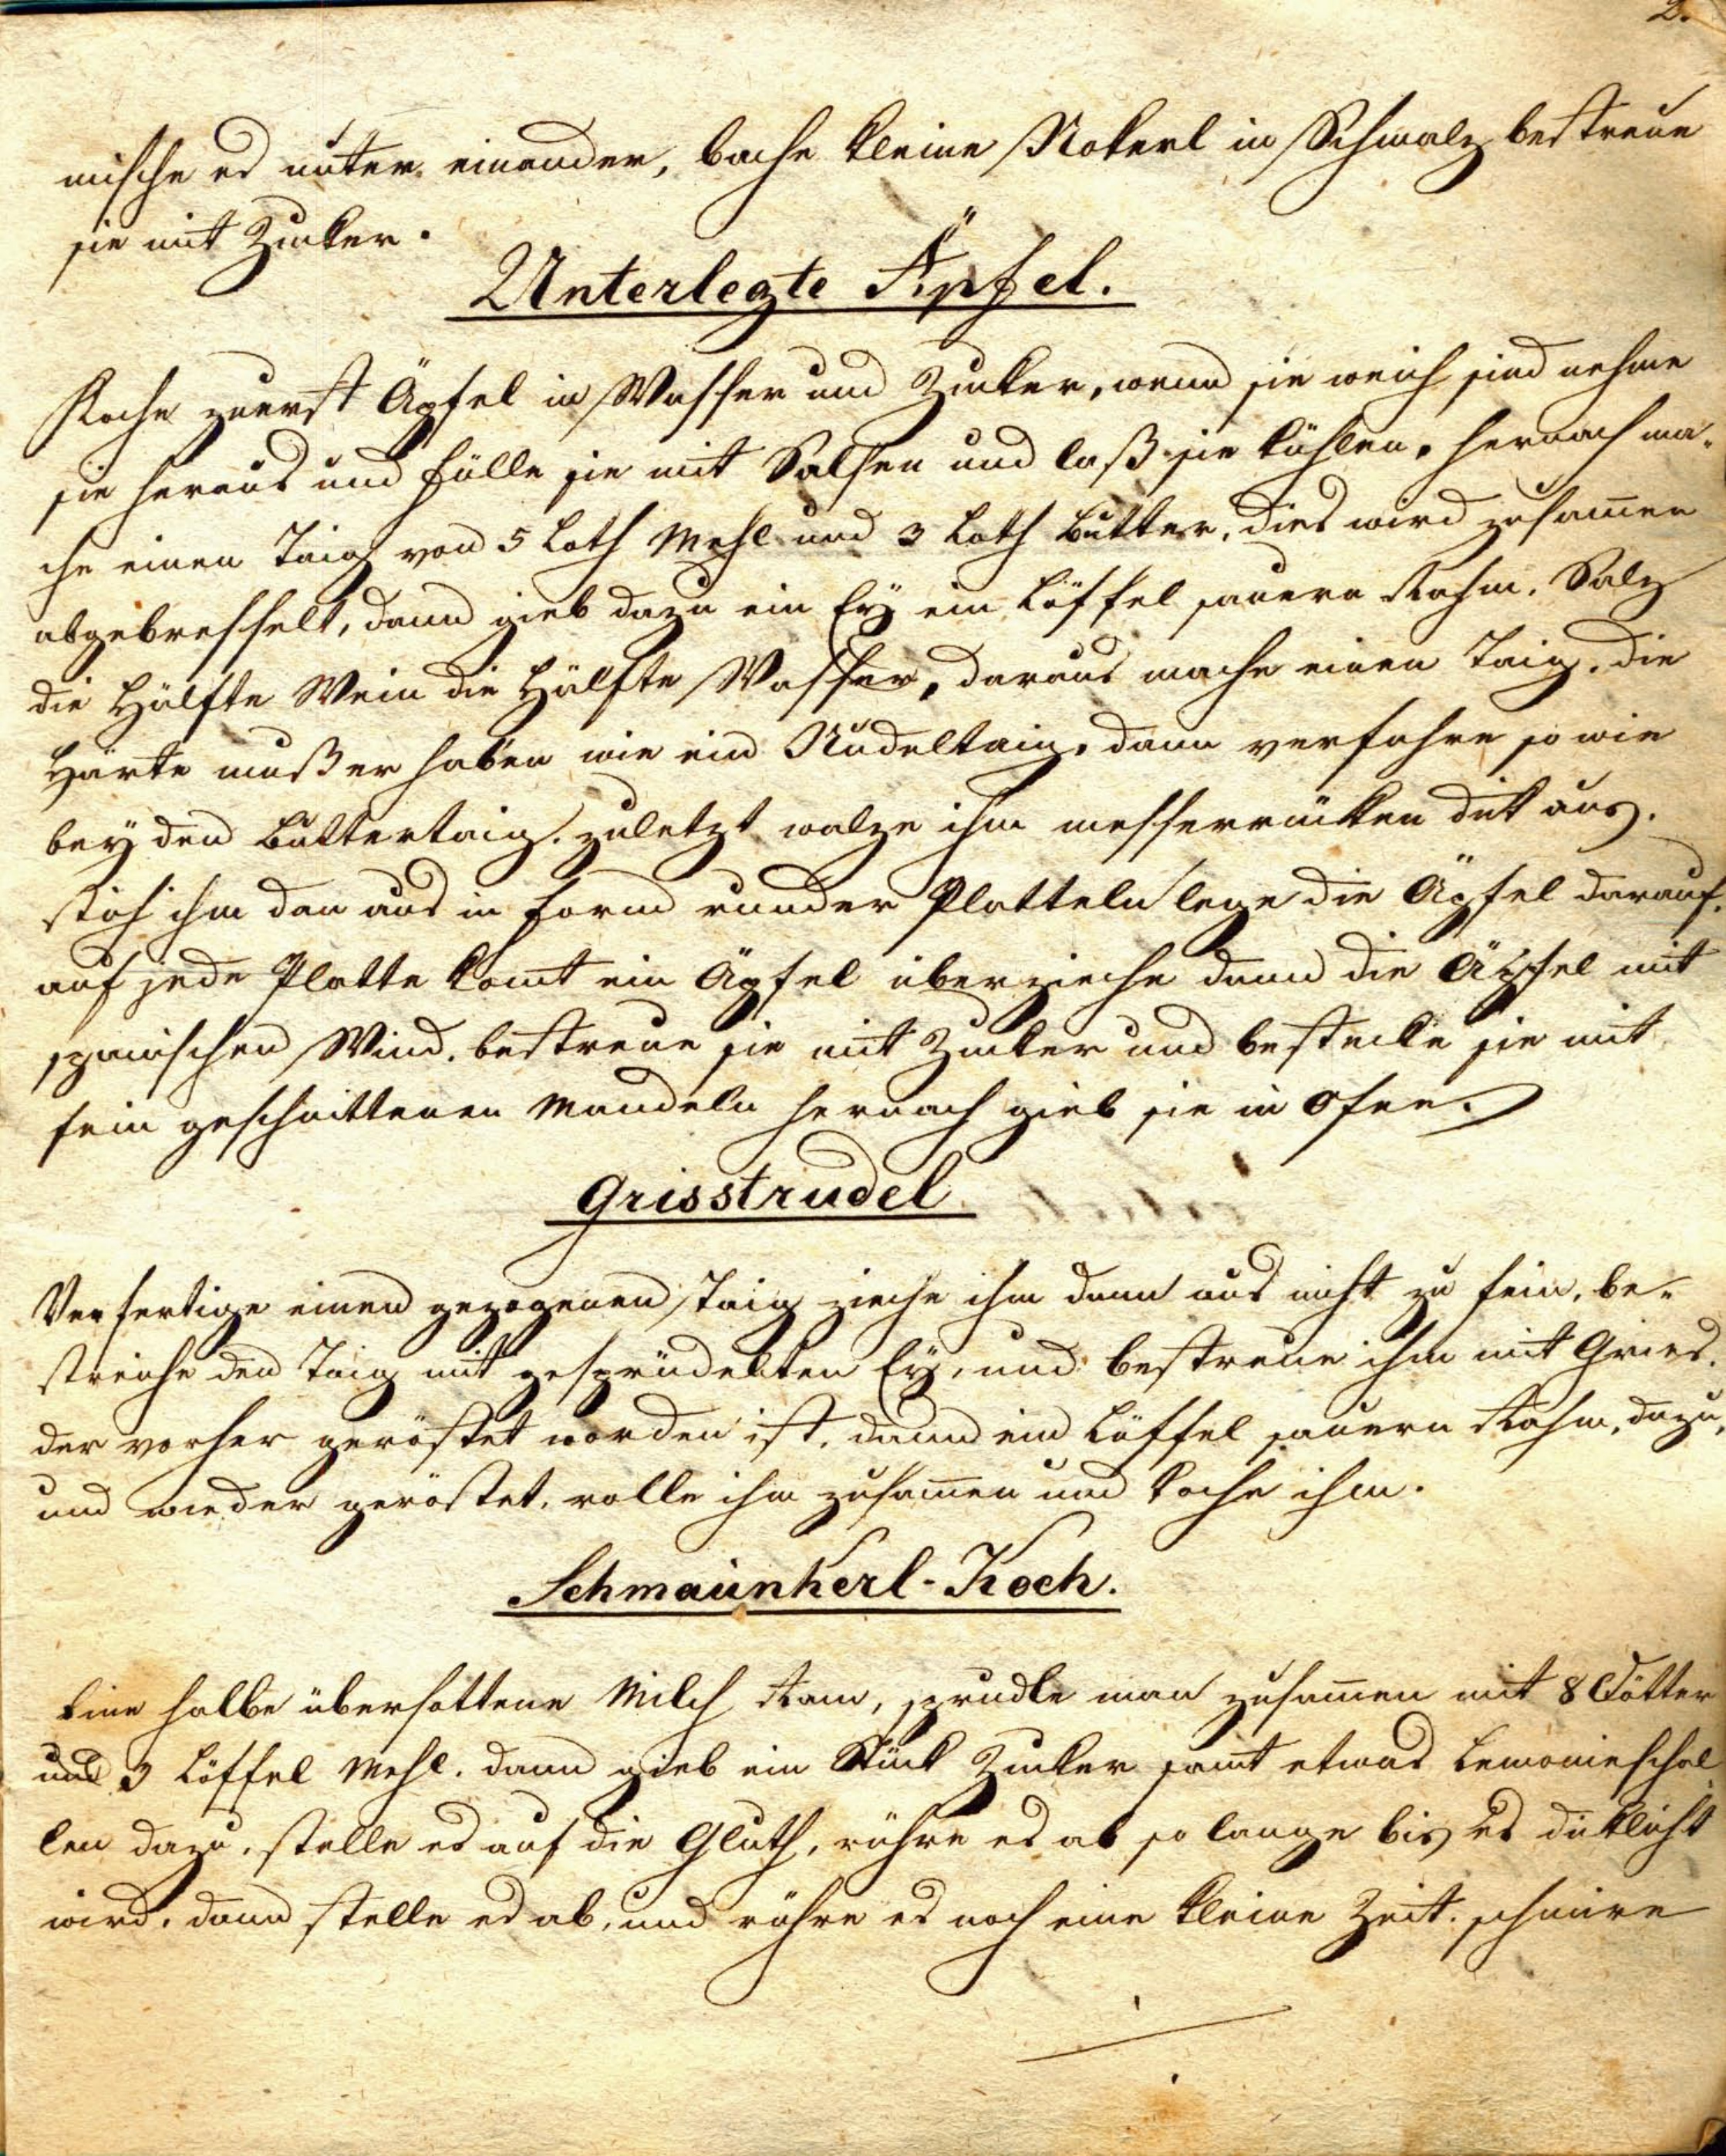 2.
mische es unter einander, bache kleine Nokerl in Schmalz bestreue
sie mit Zucker.
Unterlegte Äpfel.
Koche zuerst Äpfel in Wasser und Zucker, wenn sie weich sind nehme
sie heraus und fülle sie mit Salsen und laß sie kühlen. hernach ma-
che einen Taig von 5 Loth Mehl und 3 Loth Butter, dies wird zusam̅en
abgebresselt, dann gieb dazu ein Eÿ ein Löffel sauern Rahm. Salz
die Hälfte Wein die Hälfte Wasser, daraus mache einen Taig. die
Härte muß er haben wie ein Nudeltaig. dann verfahre so wie
beÿ den Buttertaig. zuletzt walze ihm messerrücken dik aus.
stich ihm dan aus in Form runder Platteln lege die Äpfel darauf.
auf jede Platte komt ein Äpfel überziehe dann die Äpfel mit
spanischen Wind. bestreue sie mit Zucker und bestecke sie mit
fein geschnittenen Mandeln hernach gieb sie in Ofen.
Grisstrudel
Verfertige einen gezogenen Taig ziehe ihm dann aus nicht zu fein. be-
streiche den Taig mit gesprüdelten Eÿ, und bestreue ihm mit Gries.
der vorher geröstet worden ist. dann ein Löffel sauern Rahm. dazu,
und wieder geröstet. rolle ihm zusam̅en und koche ihm.
Schmaunkerl-Koch.
Eine halbe übersottene Milch Ram, sprudle man zusam̅en mit 8 Dötter
und 3 Löffel Mehl. dann gieb ein Stück Zucker samt etwas Lemonieschal
len dazu. stelle es auf die Gluth, rühre es ab so lange bis es diklicht
wird. dann stelle es ab, und rühre es noch eine kleine Zeit. schmire